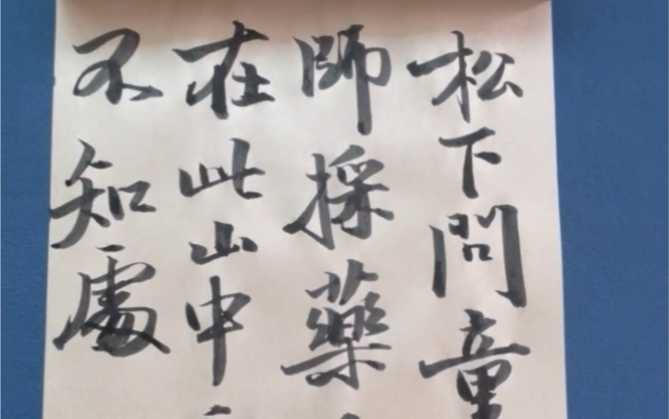 松下問童
師採藥
在此山中
不知處